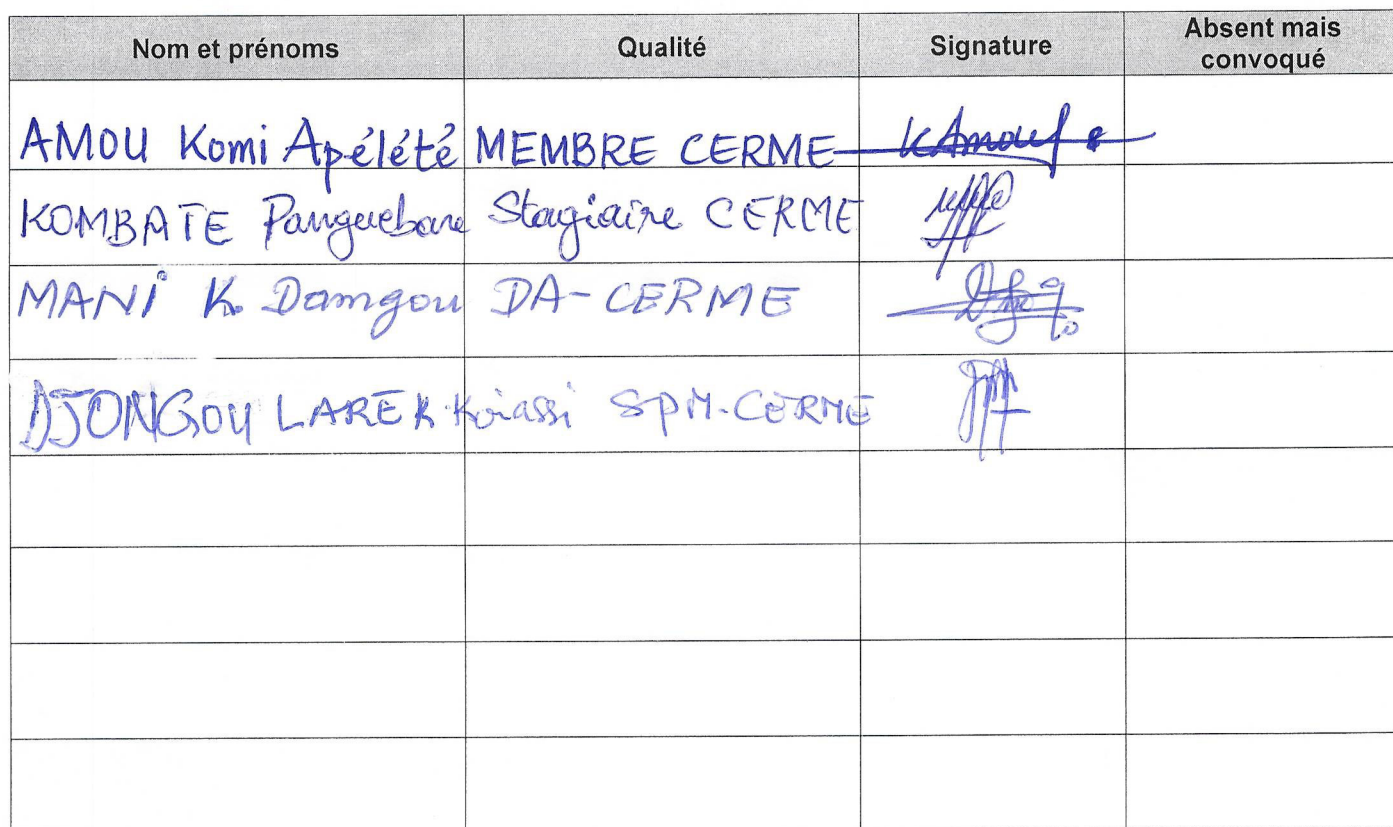 Nom et prénoms Qualité Signature Absent mais convoqué
AMOU Komi Apélété MEMBRE CERME KAmouf
KOMBATE Panguebane Stagiaire CERME
MANI K. Damgou DA-CERME
DJONGOU LAREK Koiassi SPM-CERME